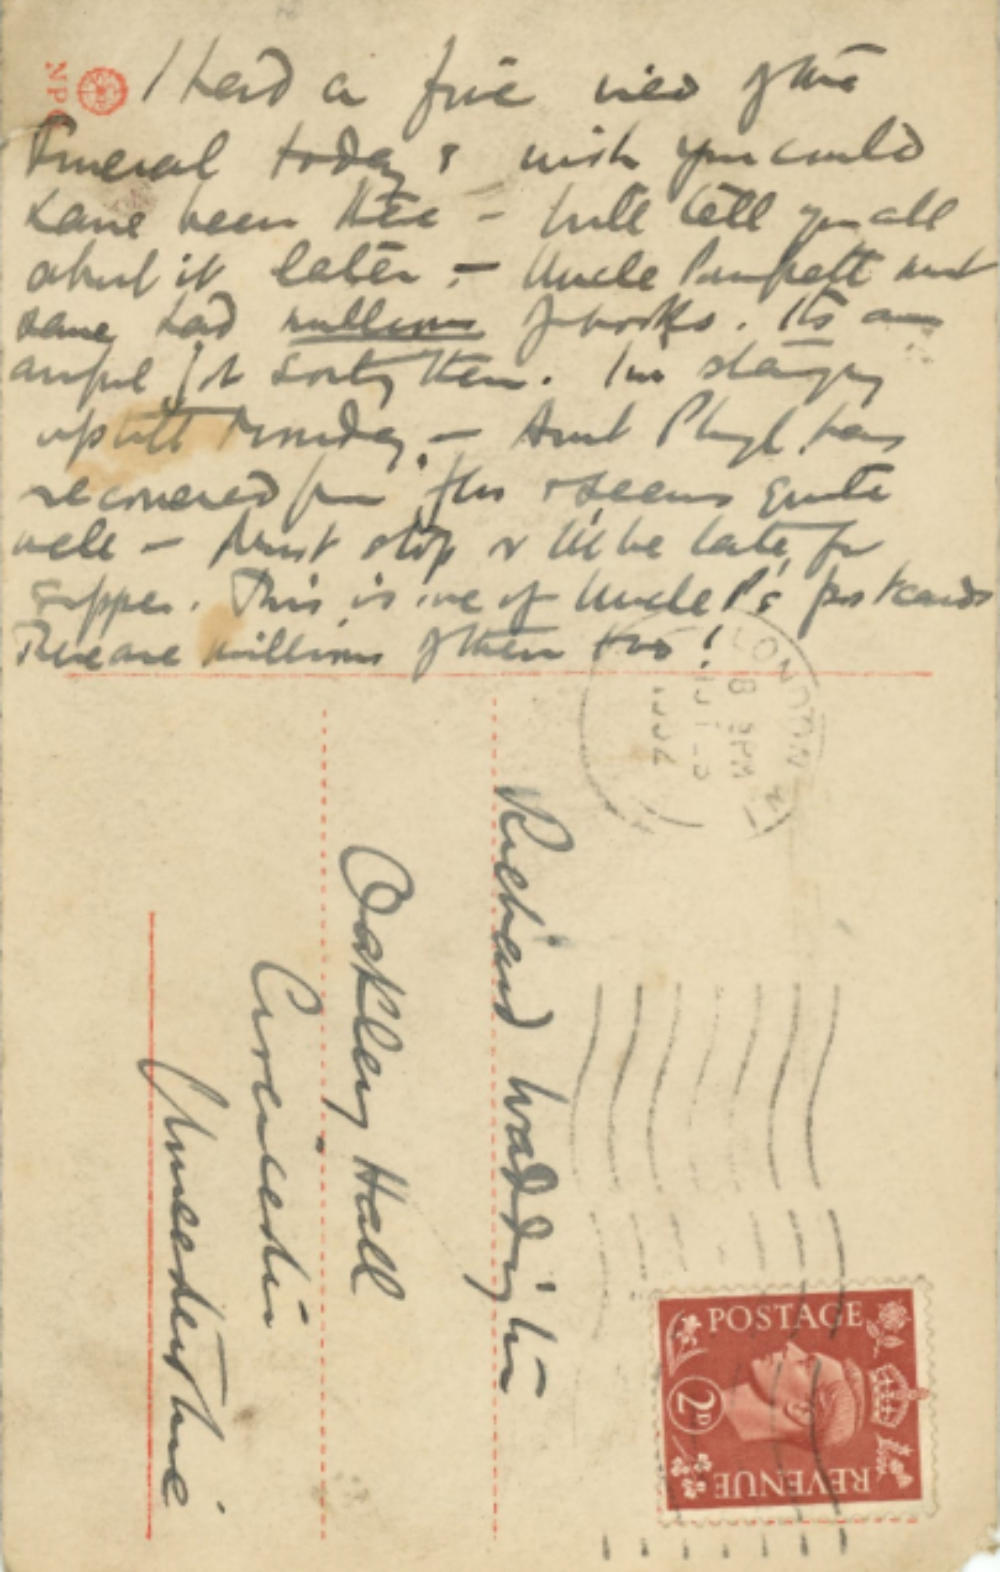 I had a fine view of the
Funeral today & wish you could
have been there – Will tell you all
about it later – Uncle must
have had millions of books. Its an
awful job sorting them. I'm staying
up till Monday – Aunt has
recovered from flu & seems quite
well – Must stop or I'll be late for
supper. This is one of Uncle P's postcards
There are millions of them too!
Richard Waddington
Oakley Hall
Cirencester
Gloucestershire
LONDON
POSTAGE
2D
REVENUE